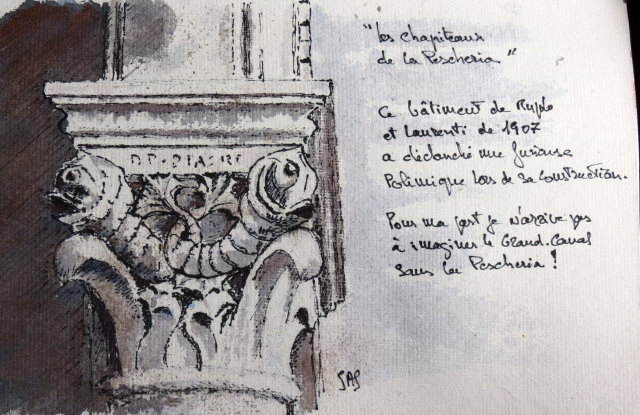 "Les chapiteaux
de la Pescheria"
Ce bâtiment de Rupolo
et Laurenti de 1907
a déclanché une furieuse
Polémique lors de sa construction.
Pour ma part je n'arrive pas
à imaginer le Grand-Canal
sans la Pescheria !
SAS